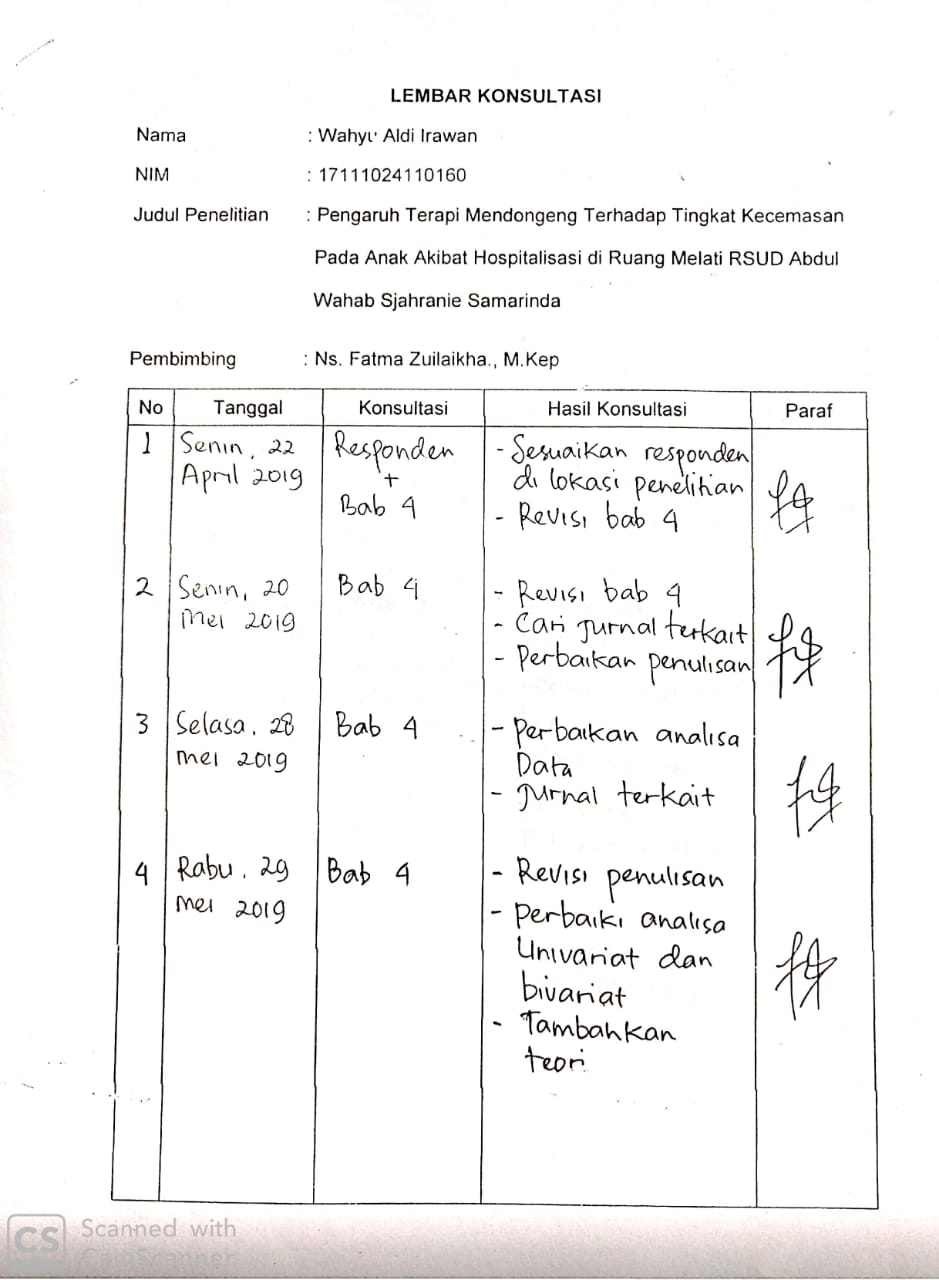 LEMBAR KONSULTASI
Nama : Wahyu Aldi Irawan
NIM : 17111024110160
Judul Penelitian : Pengaruh Terapi Mendongeng Terhadap Tingkat Kecemasan
Pada Anak Akibat Hospitalisasi di Ruang Melati RSUD Abdul
Wahab Sjahranie Samarinda
Pembimbing : Ns. Fatma Zuilaikha., M.Kep
No Tanggal Konsultasi Hasil Konsultasi Paraf
1 Senin, 22 Responden - Sesuaikan responden
April 2019 + di lokasi penelitian
Bab 4 - Revisi bab 4
2 Senin, 20 Bab 4 - Revisi bab 4
Mei 2019 - Cari jurnal terkait
- Perbaikan penulisan
3 Selasa, 28 Bab 4 - Perbaikan analisa
Mei 2019 Data
- Jurnal terkait
4 Rabu, 29 Bab 4 - Revisi penulisan
Mei 2019 - Perbaiki analisa
Univariat dan
bivariat
- Tambahkan
teori
CS Scanned with
CamScanner